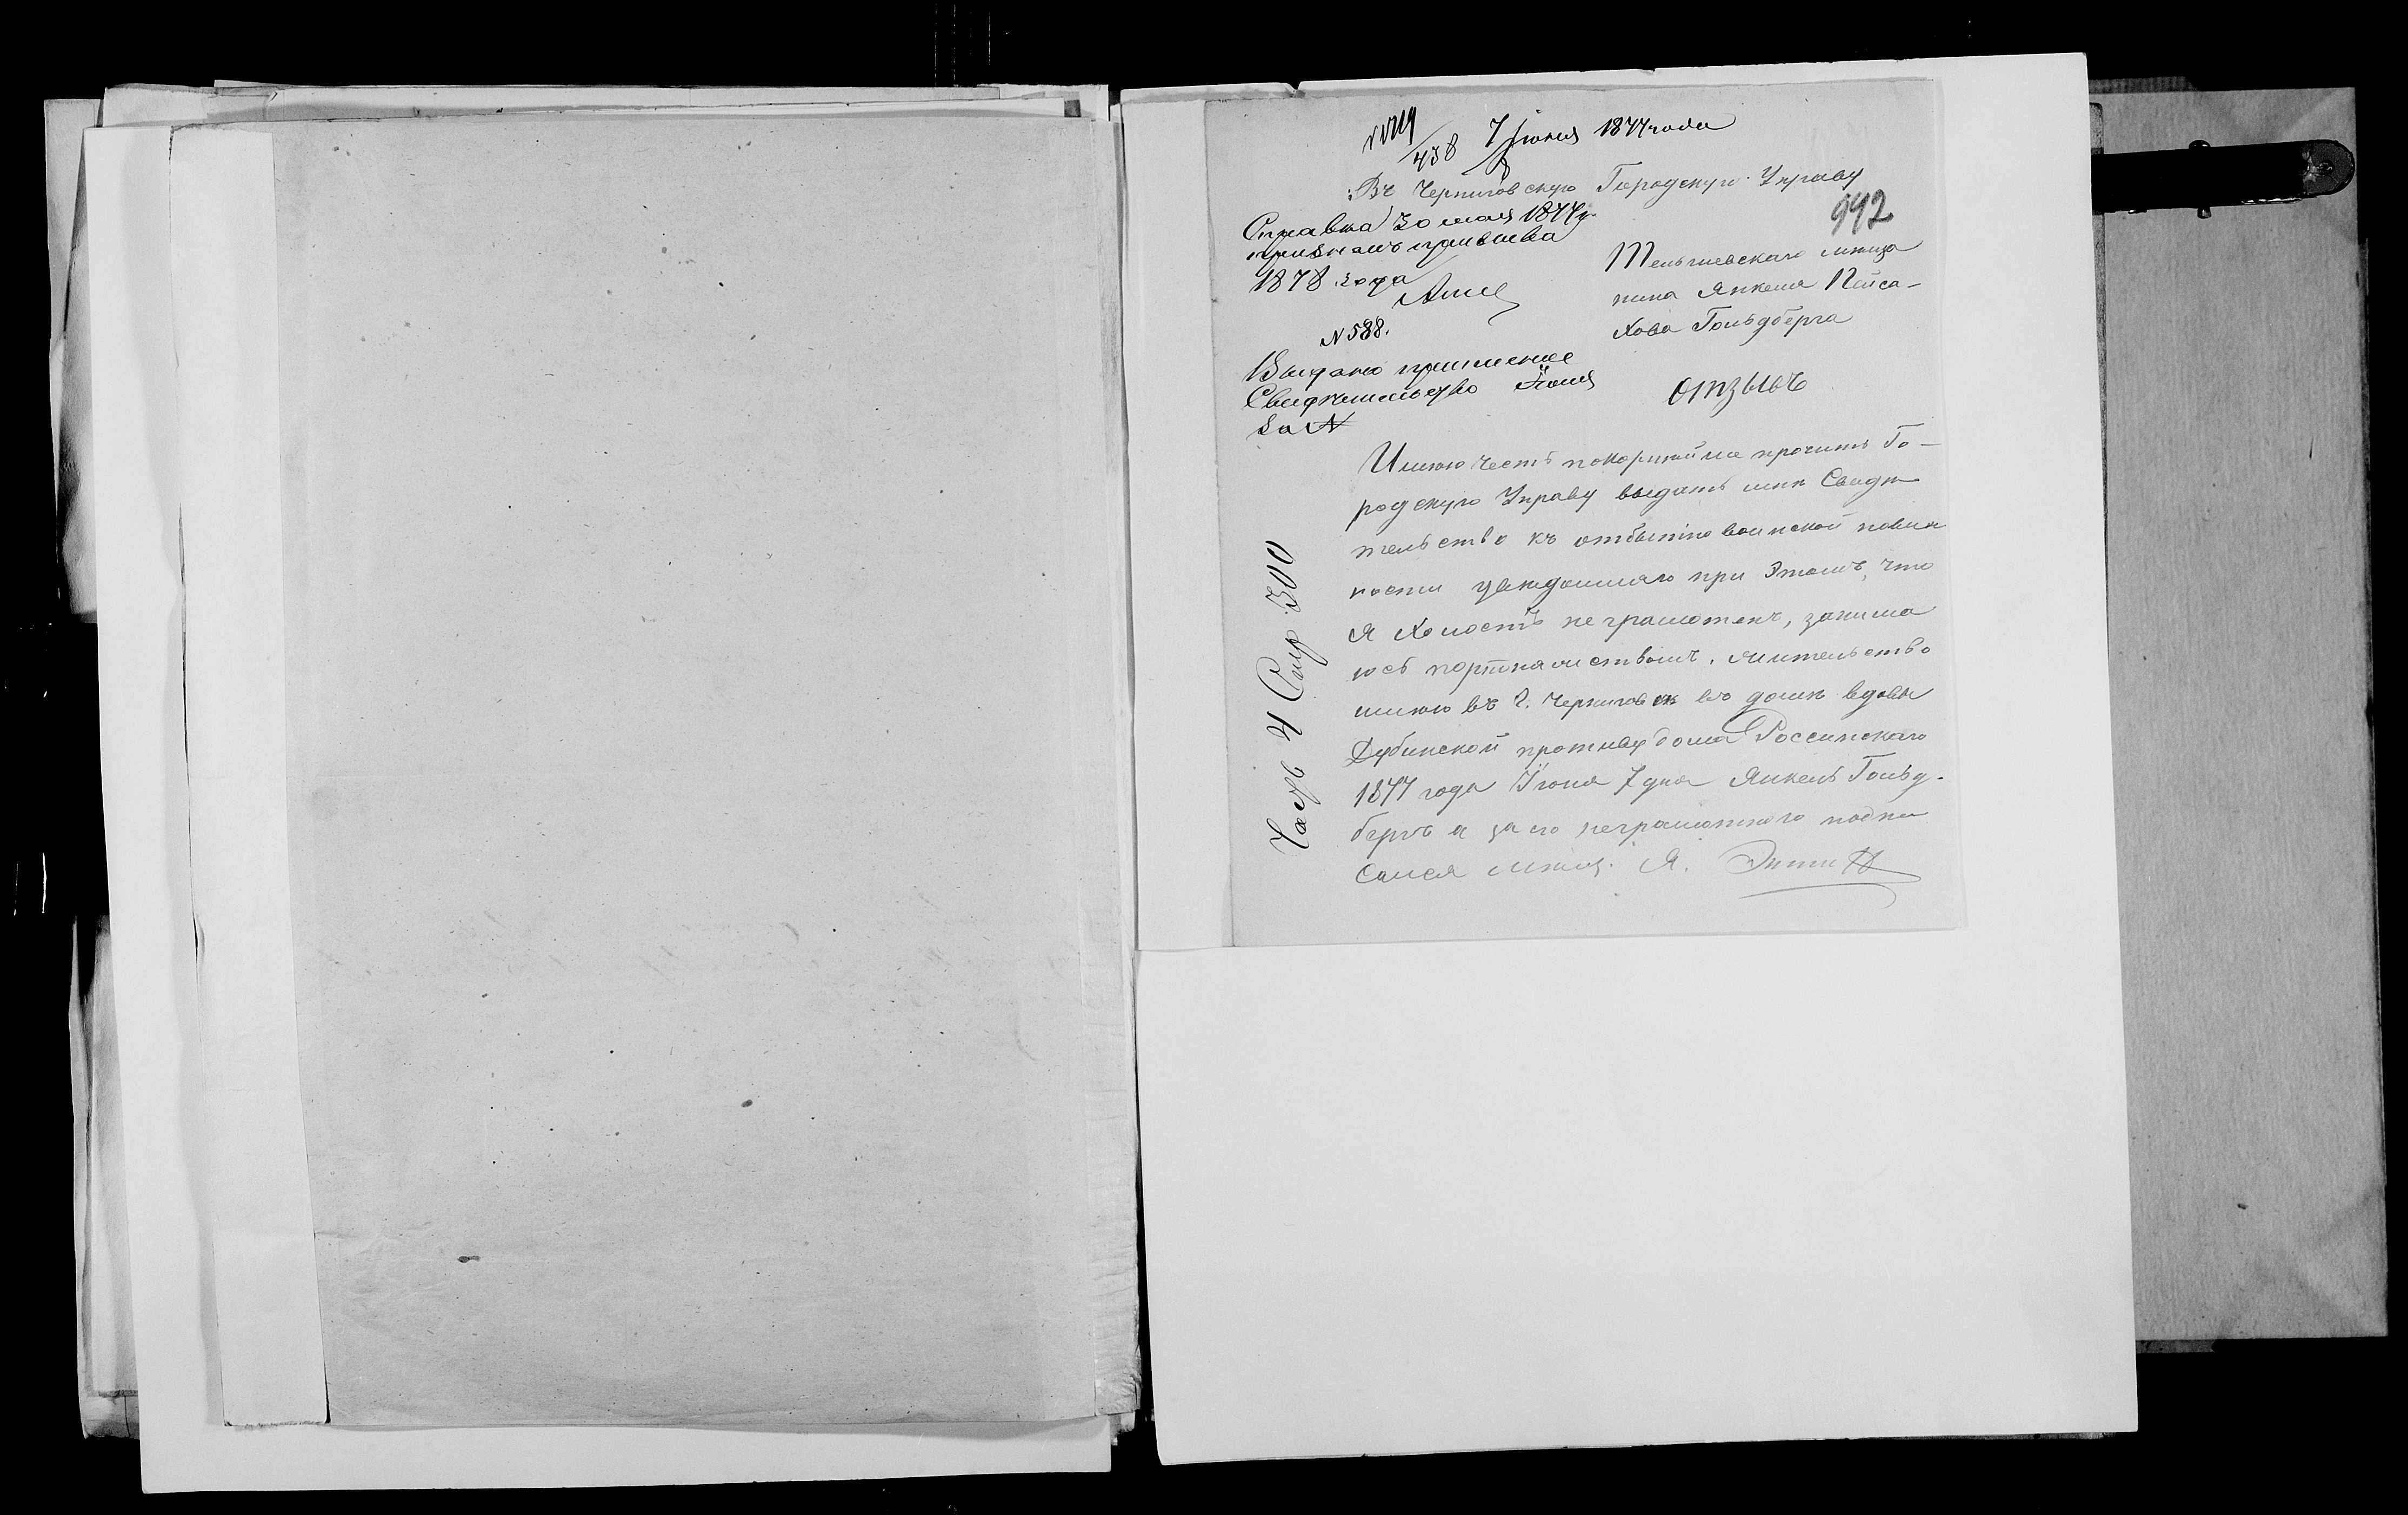 438 7 Іюня 1877 года
Въ Черниговскую Городскую Управу
992
Справка 30 мая 1877 г.
призыва
1878 года
N 588.
Выдано приписное
Свидѣтельство Іюня
За N
Тельшевскаго мѣща
нина Янкеля Пейса-
хова Гольдберга
отзывъ
Имѣю честь покорнѣйше прочить Го-
родскую Управу выдать мнѣ Свидѣ
тельство къ отбытію воинской повин
ности увѣдомляю при этомъ, что
я холостъ не грамотенъ, занима
юсь портняжествомъ, жительство
имѣю въ г. Черниговѣ въ домѣ вдовы
Дубинской противу дома Россинскаго
1877 года Іюня 7 дня Янкель Гольд-
бергъ а за его неграмотного подпи
сался мѣщ. Я.
Часть 4 Стр 300